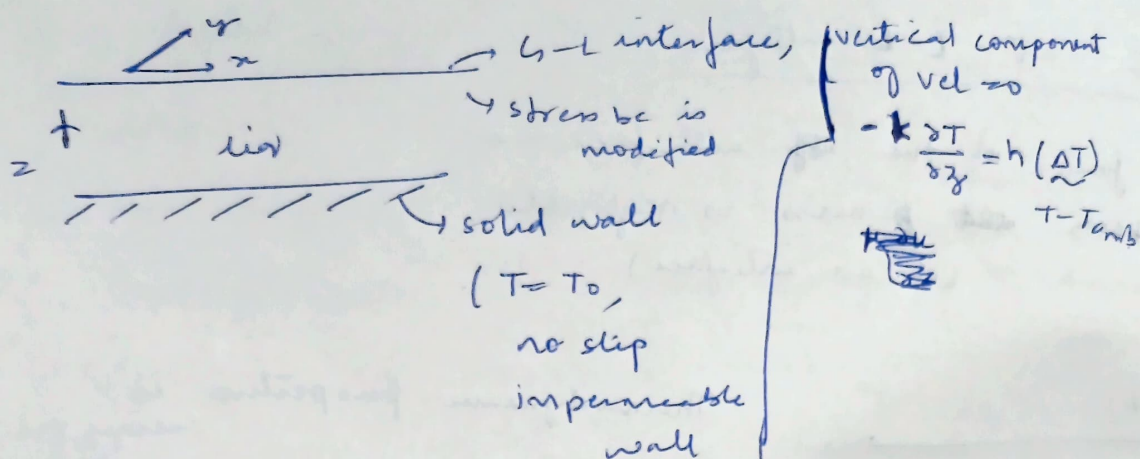 y
x
G-L interface,
stress bc is
modified
z
liq
solid wall
( T = T0,
no slip
impermeable
wall
vertical component
of vel = 0
- k ∂T/∂z = h (ΔT)
T - Tamb